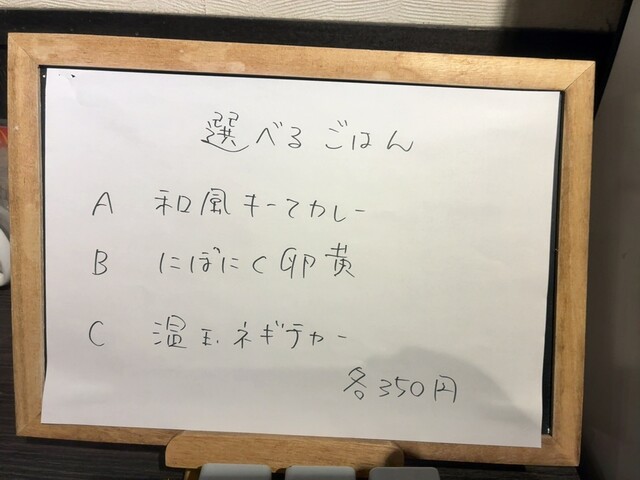 選べるごはん
A 和風キーマカレー
B にぼにく卵黄
C 温玉ネギチャー
各350円